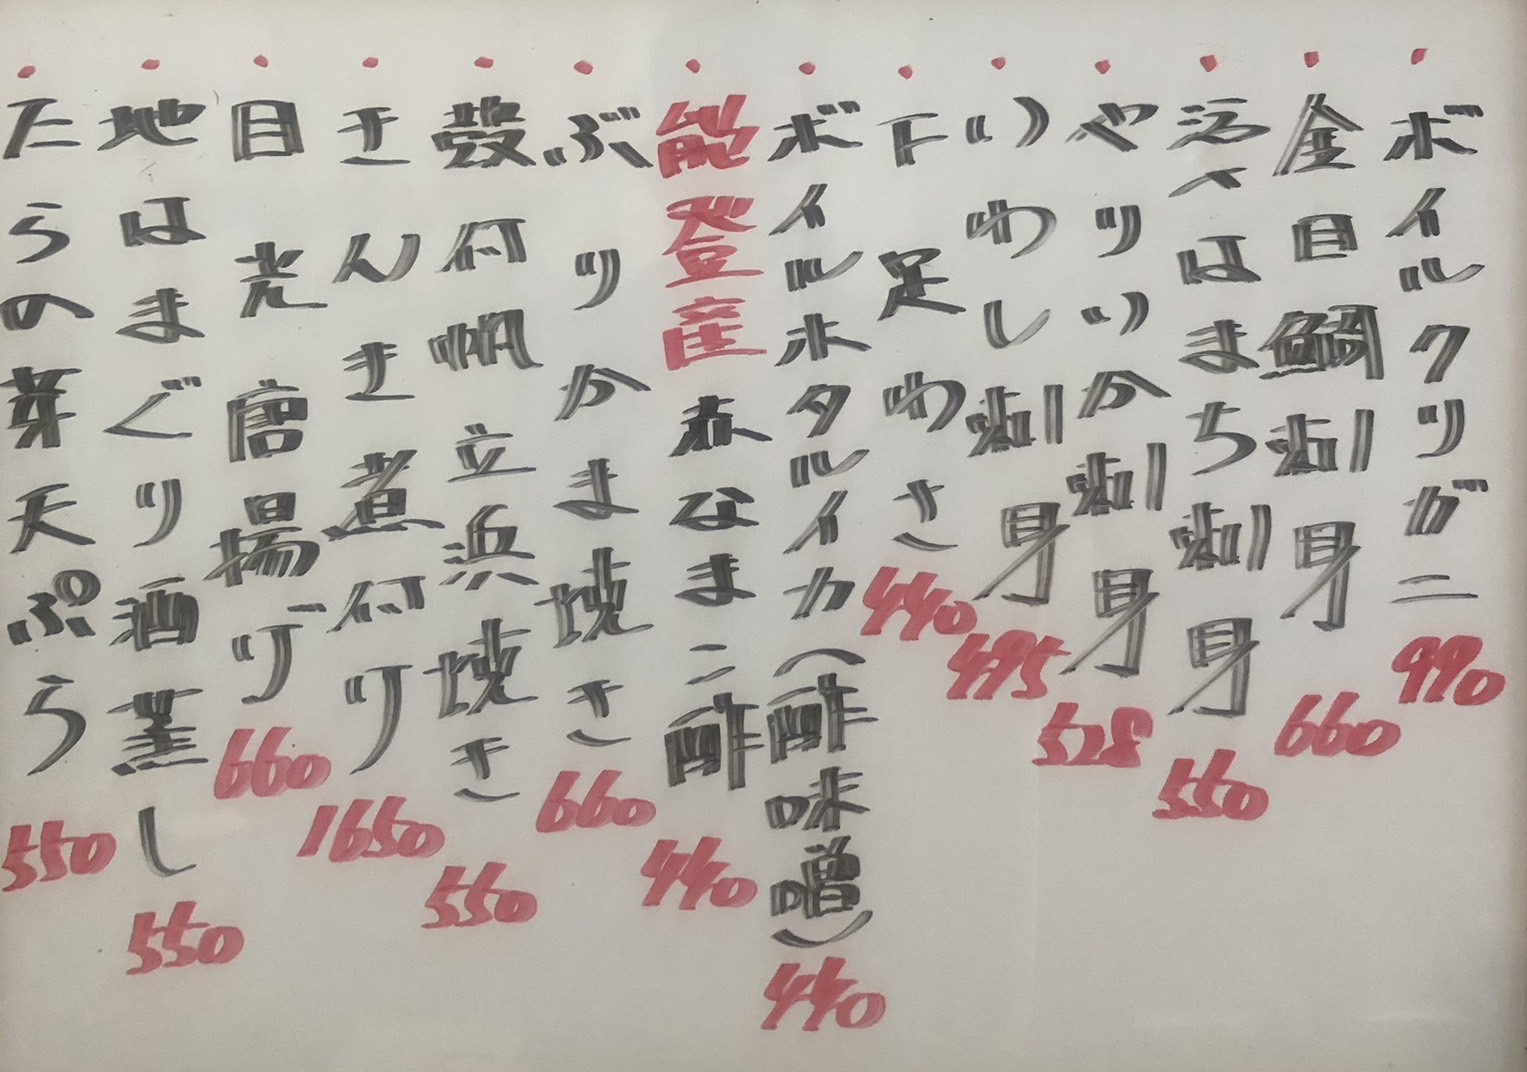 ・ボイルクリガニ 990
・金目鯛刺身 660
・活〆はまち刺身 550
・やりいか刺身 528
・いわし刺身 495
・下足わさ 440
・ボイルホタルイカ(酢味噌) 440
・能登産赤なまこ酢 440
・ぶりかま焼き 660
・殻付帆立浜焼き 550
・きんき煮付け 1650
・目光唐揚げ 660
・地はまぐり酒蒸し 550
・たらの芽天ぷら 550